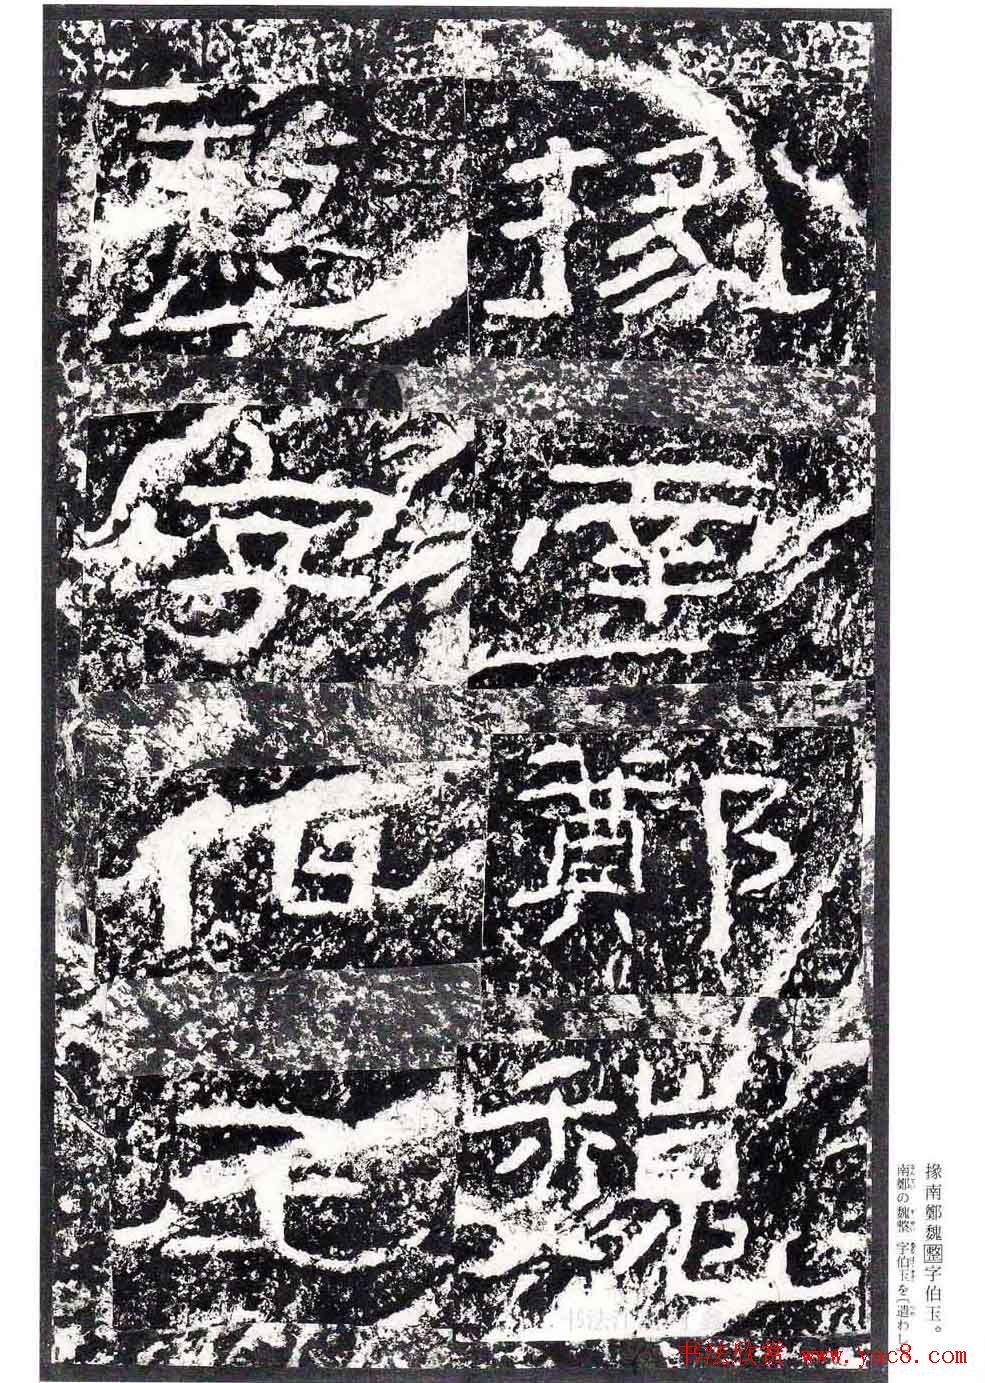 掾南鄭魏
整字伯玉
掾南鄭魏整字伯玉。
南鄭の魏整 字伯玉を〔遣わし
书法欣赏 www.yac8.com